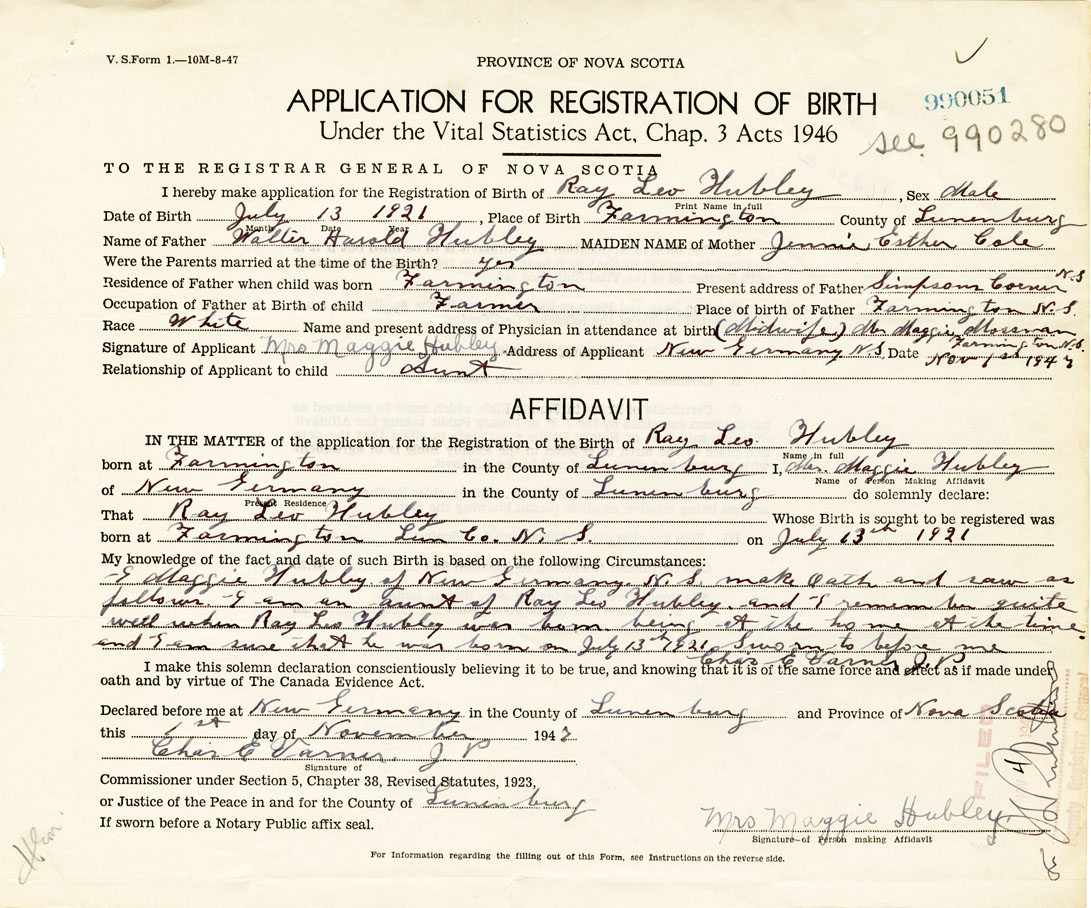 V. S.Form 1.—10M-8-47
PROVINCE OF NOVA SCOTIA
APPLICATION FOR REGISTRATION OF BIRTH
990051
Under the Vital Statistics Act, Chap. 3 Acts 1946
see 990280
TO THE REGISTRAR GENERAL OF NOVA SCOTIA
I hereby make application for the Registration of Birth of Ray Leo Hubley, Sex Male
Print Name in full
Date of Birth July 13 1921, Place of Birth Farmington County of Lunenburg
Month Date Year
Name of Father Walter Harold Hubley MAIDEN NAME of Mother Jennie Esther Cole
Were the Parents married at the time of the Birth? yes
Residence of Father when child was born Farmington Present address of Father Simpsons Corner N.S
Occupation of Father at Birth of child Farmer Place of birth of Father Farmington N.S.
Race White Name and present address of Physician in attendance at birth (Midwife) Mrs Maggie Mossman
Farmington N.S.
Signature of Applicant Mrs Maggie Hubley Address of Applicant New Germany N.S. Date Nov 1st 1947
Relationship of Applicant to child Aunt
AFFIDAVIT
IN THE MATTER of the application for the Registration of the Birth of Ray Leo Hubley
Name in full
born at Farmington in the County of Lunenburg I, Mrs. Maggie Hubley
Name of Person Making Affidavit
of New Germany in the County of Lunenburg do solemnly declare:
Present Residence
That Ray Leo Hubley Whose Birth is sought to be registered was
born at Farmington Lun Co. N. S. on July 13th 1921
My knowledge of the fact and date of such Birth is based on the following Circumstances:
I Maggie Hubley of New Germany N.S. make Oath and saw as
follows. I am an aunt of Ray Leo Hubley. and I remember quite
well when Ray Leo Hubley was born being at the home at the time
and I am sure that he was born on July 13th 1921. Sworn to before me
Chas E Varner J.P
I make this solemn declaration conscientiously believing it to be true, and knowing that it is of the same force and effect as if made under
oath and by virtue of The Canada Evidence Act.
Declared before me at New Germany in the County of Lunenburg and Province of Nova Scotia
this 1st day of November 1947
Chas E Varner. J P
Signature of
Commissioner under Section 5, Chapter 38, Revised Statutes, 1923,
or Justice of the Peace in and for the County of Lunenburg
If sworn before a Notary Public affix seal.
Mrs Maggie Hubley
Signature of Person making Affidavit
For Information regarding the filling out of this Form, see Instructions on the reverse side.
FILED
Deputy Registrar General